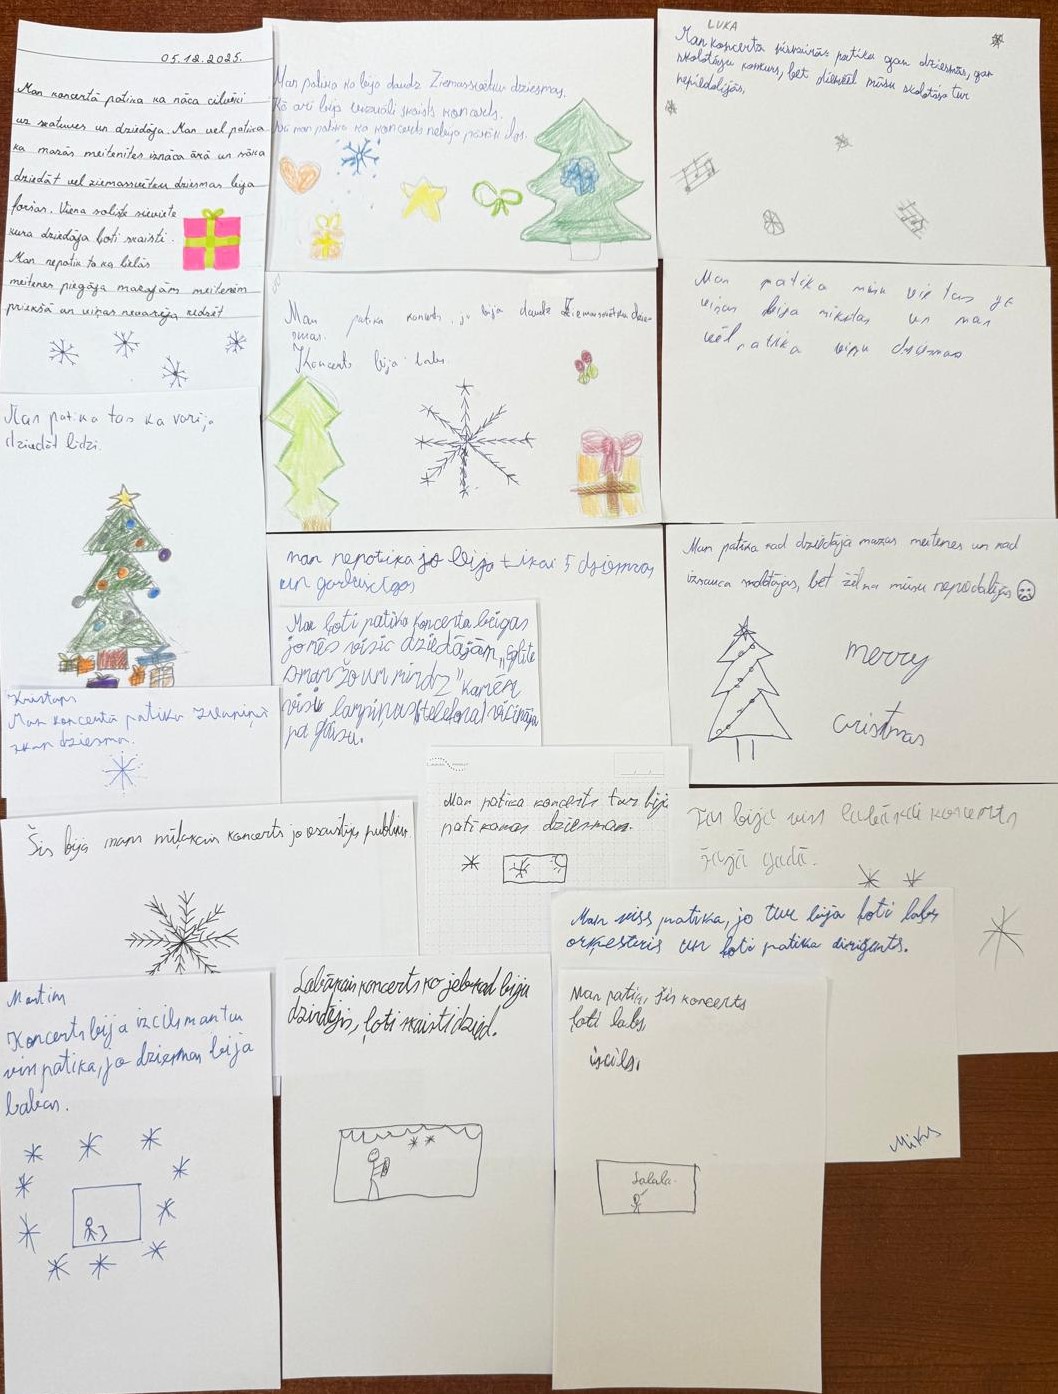 05.12.2025.
Man koncertā patika ka nāca cilvēki
uz skatuves un dziedāja. Man vel patika
ka mazās meitenītes iznāca ārā un sāka
dziedāt vel ziemassvētku dziesmas bija
foršas. Viena soliste sieviete
kura dziedāja ļoti skaisti.
Man nepatik ta ka lielās
meitenes piegāja mazajām meitenēm
priekšā un viņas nevarēja redzēt
Man patika ka bija daudz Ziemassvētku dziesmas.
Kā arī bija vizuāli skaists koncerts.
man patika ka koncerts nebija pārāk ilgs.
LUKA
Man koncerta visvairāk patika gan dziesmās, gan
skolotāju konkurs, bet diemžēl mūsu skolotāja tur
nepildolijās,
Man patika koncerts, jo bija daudz Ziemassvētku dzie-
smas.
Koncerts bija labs.
Man patika mūsu vietas ja
viņas bija mīkstas un man
vēl patika viņu dziesmas
Man patika tas ka varēja
dziedāt līdzi.
man nepatika jo bija tikai 5 dziesmas
un garlaicīgas
Man ļoti patika koncerta beigas
jo mēs visi dziedājām "Eglīte
kamēr
visi lampiņas (telefona) vicināja
pa gaisu.
Man patika kad dziedāja mazas meitenes un kad
izsauca skolotājas, bet žēl ka mūsu nepedalījās
merry
cristmas
Kristaps
Man koncertā patika Zvaniņā
zkan dziesma.
Šis bija mans mīļākais koncerts jo osaistīja publiku
Man patika koncerts tur bija
patikamas dziesmas.
Tas bija viss labākais koncerts
šajā gadā.
Man viss patika, jo tur bija ļoti labs
orķesteris un ļoti patika diriģents.
Mikus
Martin
Koncerts bija izcils man tur
viss patika, jo dziesmas bija
labas.
Labākais koncerts ko jebkad biju
dzirdējis, ļoti skaisti dzied.
Man patika šis koncerts
ļoti labs
iscils,
Lalala.